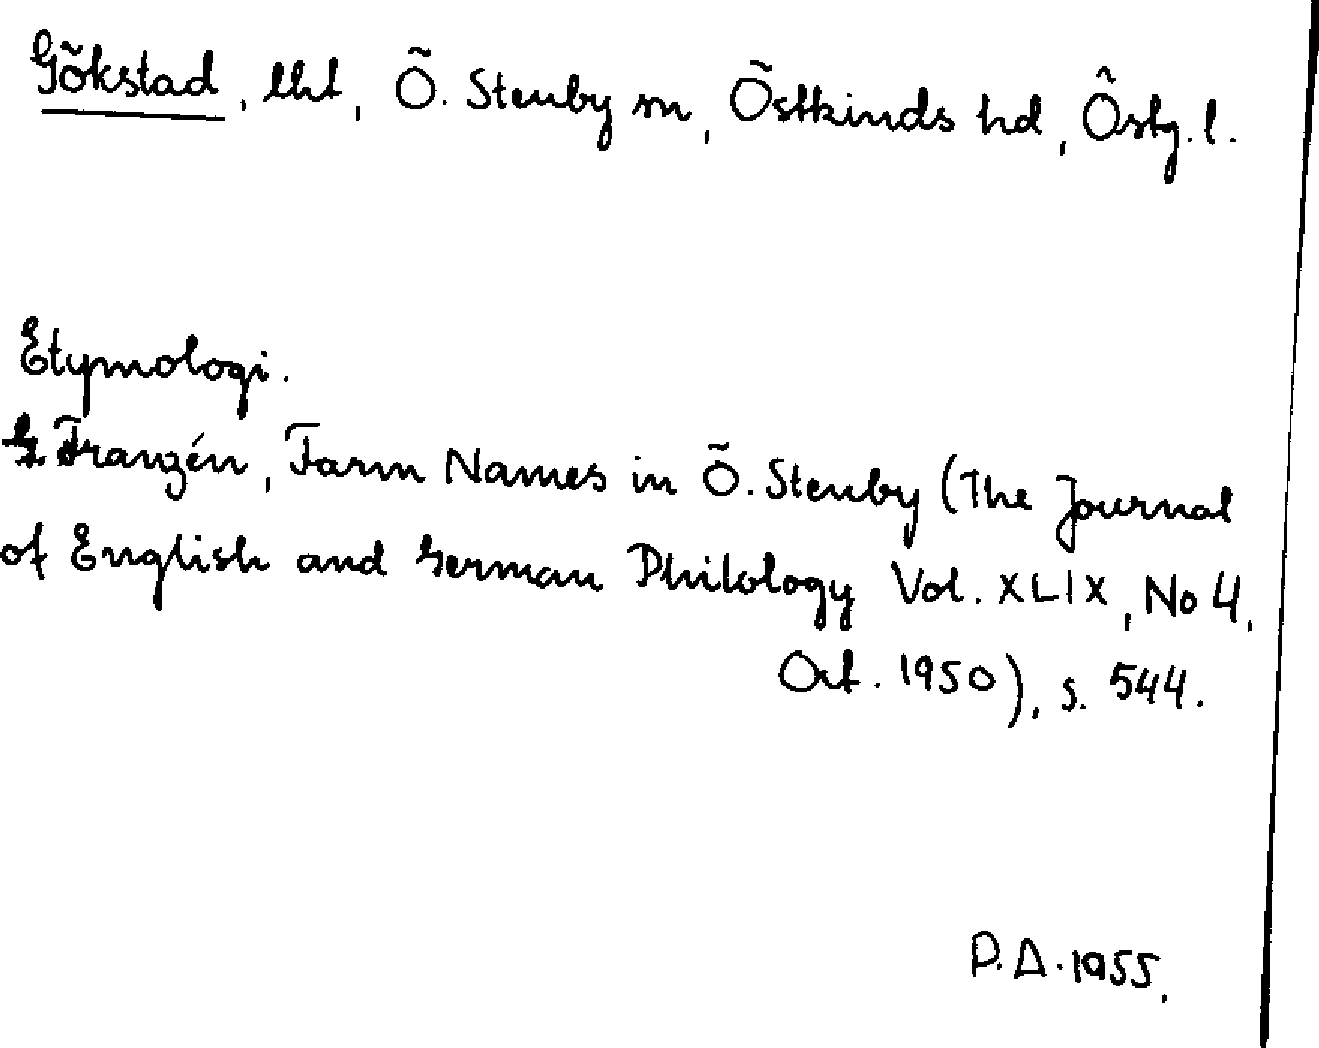 Gökstad, lht, Ö. Stenby sn, Östkinds hd, Östg. l.
Etymologi.
G Franzén, Farm Names in Ö. Stenby (The Journal
of English and German Philology Vol. XLIX, No 4,
Oct. 1950), s. 544.
P.A. 1955.